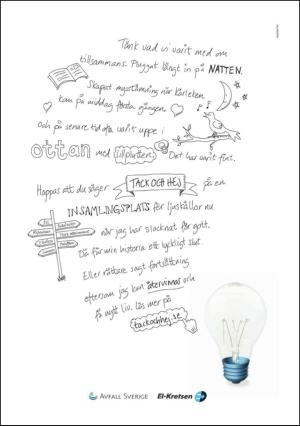 Tänk vad vi varit med om
tillsammans. Pluggat långt in på NATTEN.
Skapat mysstämning när kärleken
kom på middag första gången.
Och på senare tid ofta varit uppe i
ottan med tillplatten. Det har varit fint.
Hoppas att du säger TACK OCH HEJ på en
INSAMLINGSPLATS för ljuskällor nu
när jag har slocknat för gott.
Då får min historia ett lyckligt slut.
Eller rättare sagt fortsättning
eftersom jag kan återvinnas och
få nytt liv. Läs mer på
tackochhej.se
AVFALL SVERIGE El-Kretsen